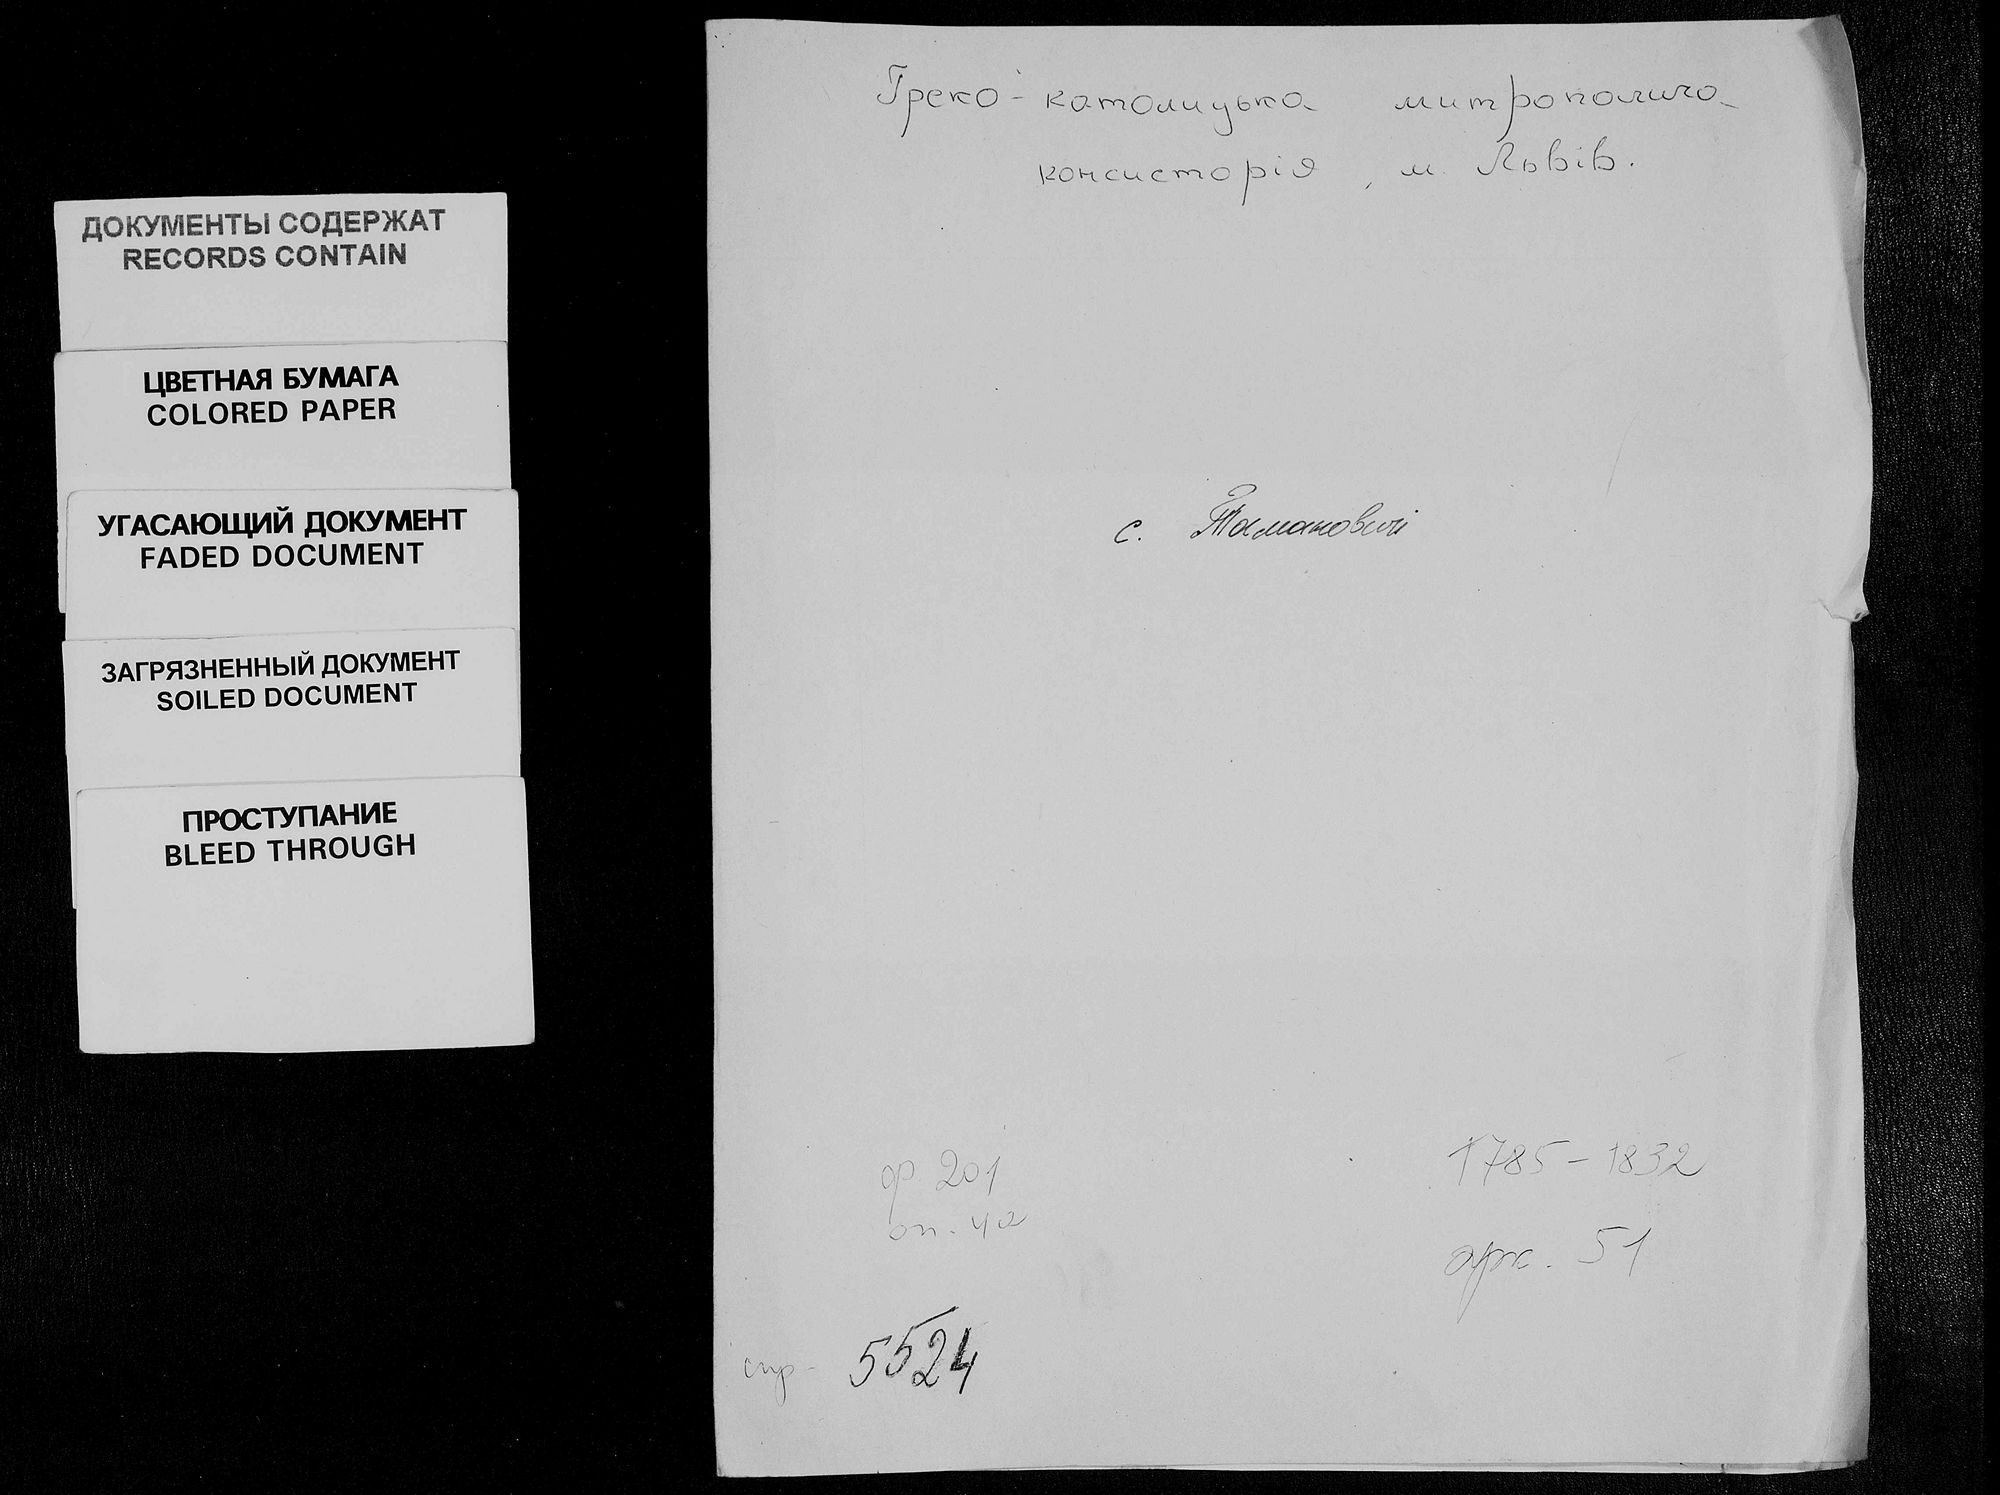 ДОКУМЕНТЫ СОДЕРЖАТ
RECORDS CONTAIN
ЦВЕТНАЯ БУМАГА
COLORED PAPER
УГАСАЮЩИЙ ДОКУМЕНТ
FADED DOCUMENT
ЗАГРЯЗНЕННЫЙ ДОКУМЕНТ
SOILED DOCUMENT
ПРОСТУПАНИЕ
BLEED THROUGH
Греко-католицька митрополича
консисторія, м. Львів.
с. Тамановичі
ф 201
оп. 4а
1785-1832
арк. 51
спр- 5524